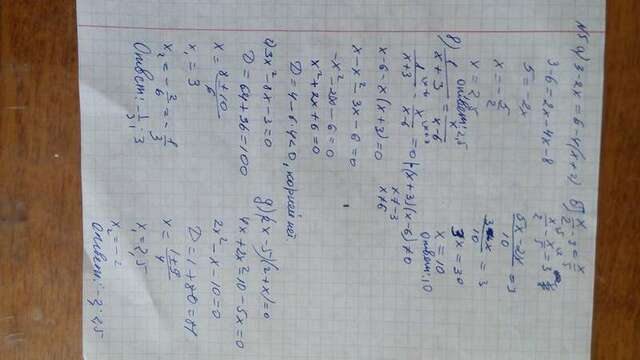 N5 а) 3-2x=6-4(x+2)
3-6=2x-4x-8
5=-2x
x=-5/2
x=2,5
Ответ: 2,5
б) x/2-3=x/5
x/2-x/5=3
5x-2x/10=3
3x/10=3
3x=30
x=10
Ответ: 10
в) 1/x+3=x/x-6
1/x+3-x/x-6=0 |(x+3)(x-6)≠0
x≠-3
x≠6
x-6-x(x+3)=0
x-x²-3x-6=0
-x²-2x-6=0
x²+2x+6=0
D=4-6·4<0, корней нет
г) 3x²-8x-3=0
D=64+36=100
x=8±10/6
x₁=3
x₂=-2/6=-1/3
Ответ: -1/3; 3
д) (2x-5)(2+x)=0
4x+2x²-10-5x=0
2x²-x-10=0
D=1+80=81
x=1±9/4
x₁=2,5
x₂=-2
Ответ: -2; 2,5